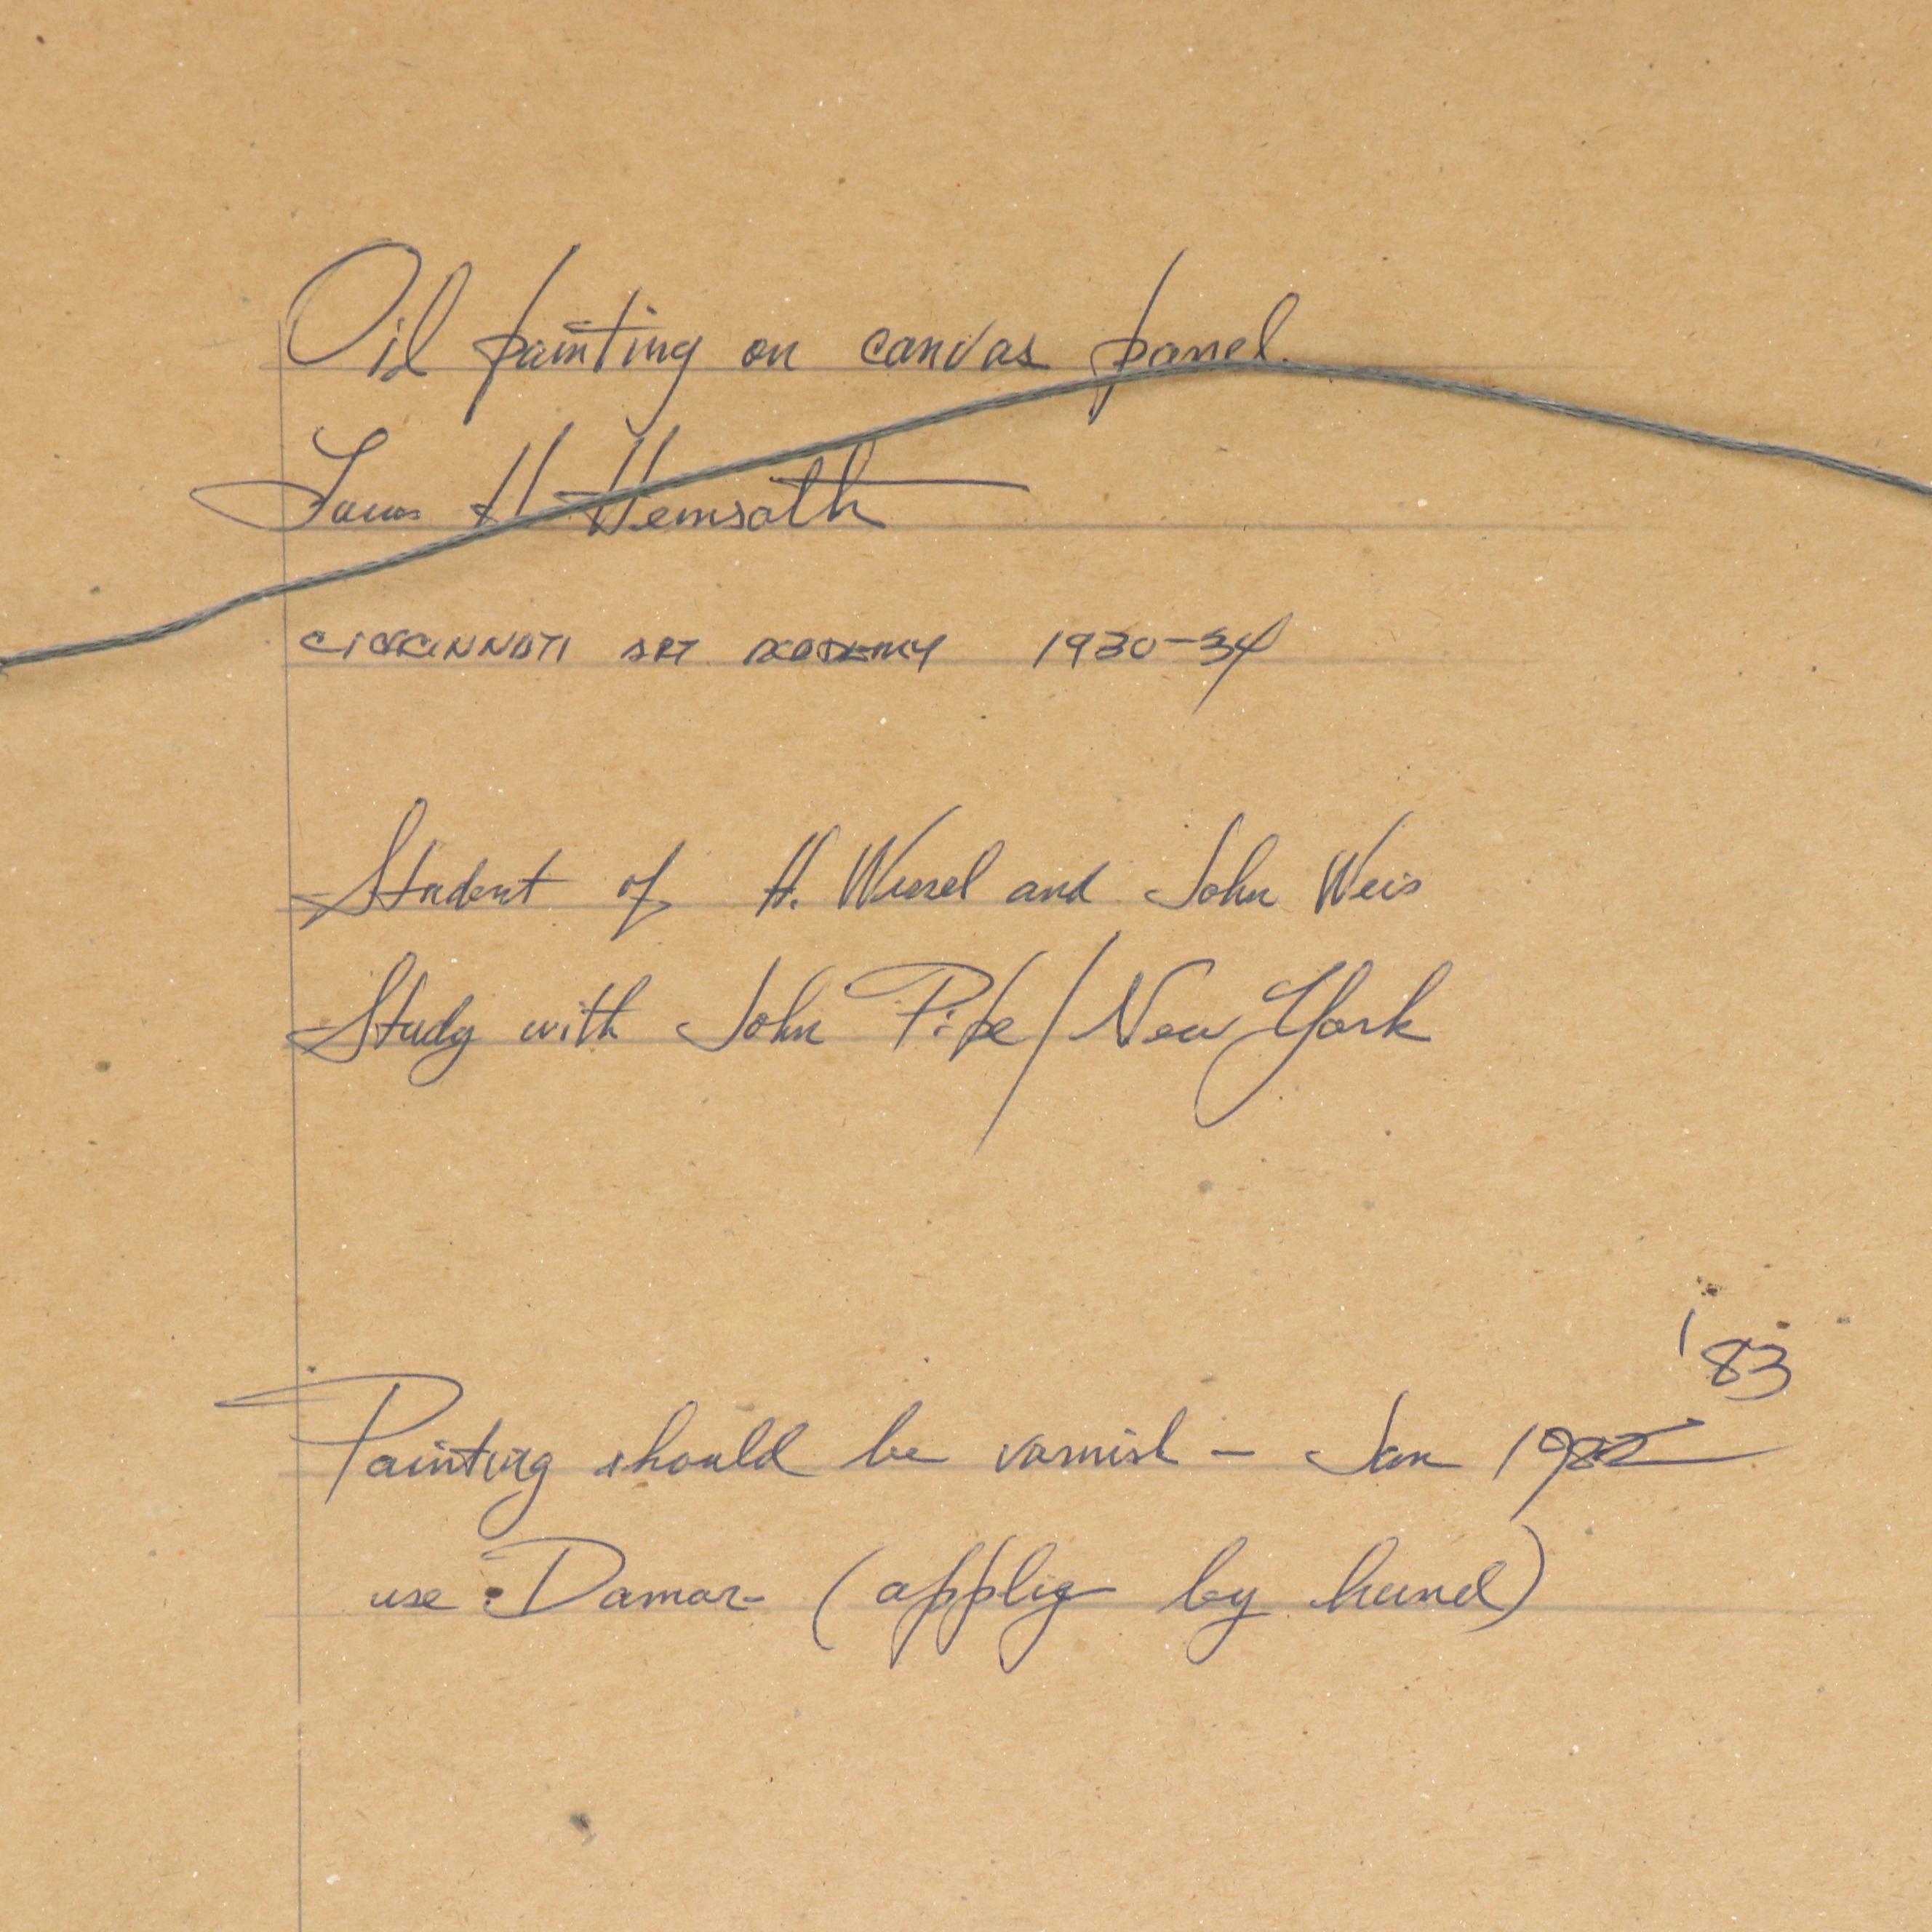 Oil painting on canvas panel.
Louis H Hemsath
CINCINNATI ART ACADEMY 1930-34
Student of H. Wessel and John Weis
Study with John Pike/New York
'83
Painting should be varnish - Jan 1982
use Damar- (apply by hand)